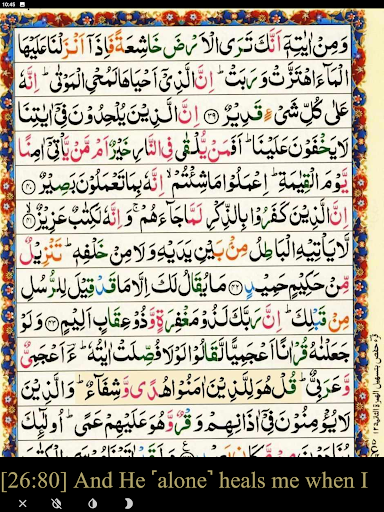 10:45
وَمِنْ اٰيٰتِهٖٓ اَنَّكَ تَرَى الْاَرْضَ خَاشِعَةً فَاِذَآ اَنْزَلْنَا عَلَيْهَا
الْمَآءَ اهْتَزَّتْ وَرَبَتْ ؕ اِنَّ الَّذِيْٓ اَحْيَاهَا لَمُحْيِ الْمَوْتٰى ؕ اِنَّهٗ
عَلٰى كُلِّ شَيْءٍ قَدِيْرٌ ﴿۳۹﴾ اِنَّ الَّذِيْنَ يُلْحِدُوْنَ فِيْٓ اٰيٰتِنَا
لَا يَخْفَوْنَ عَلَيْنَا ؕ اَفَمَنْ يُّلْقٰى فِي النَّارِ خَيْرٌ اَمْ مَّنْ يَّاْتِيْٓ اٰمِنًا
يَّوْمَ الْقِيٰمَةِ ؕ اِعْمَلُوْا مَا شِئْتُمْ ۙ اِنَّهٗ بِمَا تَعْمَلُوْنَ بَصِيْرٌ ﴿۴۰﴾
اِنَّ الَّذِيْنَ كَفَرُوْا بِالذِّكْرِ لَمَّا جَآءَهُمْ ۚ وَاِنَّهٗ لَكِتٰبٌ عَزِيْزٌ ﴿۴۱﴾
لَّا يَاْتِيْهِ الْبَاطِلُ مِنْۢ بَيْنِ يَدَيْهِ وَلَا مِنْ خَلْفِهٖ ؕ تَنْزِيْلٌ
مِّنْ حَكِيْمٍ حَمِيْدٍ ﴿۴۲﴾ مَا يُقَالُ لَكَ اِلَّا مَا قَدْ قِيْلَ لِلرُّسُلِ
مِنْ قَبْلِكَ ؕ اِنَّ رَبَّكَ لَذُوْ مَغْفِرَةٍ وَّذُوْ عِقَابٍ اَلِيْمٍ ﴿۴۳﴾ وَلَوْ
جَعَلْنٰهُ قُرْاٰنًا اَعْجَمِيًّا لَّقَالُوْا لَوْلَا فُصِّلَتْ اٰيٰتُهٗ ؕ ءَاَعْجَمِيٌّ
وَّعَرَبِيٌّ ؕ قُلْ هُوَ لِلَّذِيْنَ اٰمَنُوْا هُدًى وَّشِفَآءٌ ؕ وَالَّذِيْنَ
لَا يُؤْمِنُوْنَ فِيْٓ اٰذَانِهِمْ وَقْرٌ وَّهُوَ عَلَيْهِمْ عَمًى ؕ اُولٰٓئِكَ
[26:80] And He ˹alone˺ heals me when I